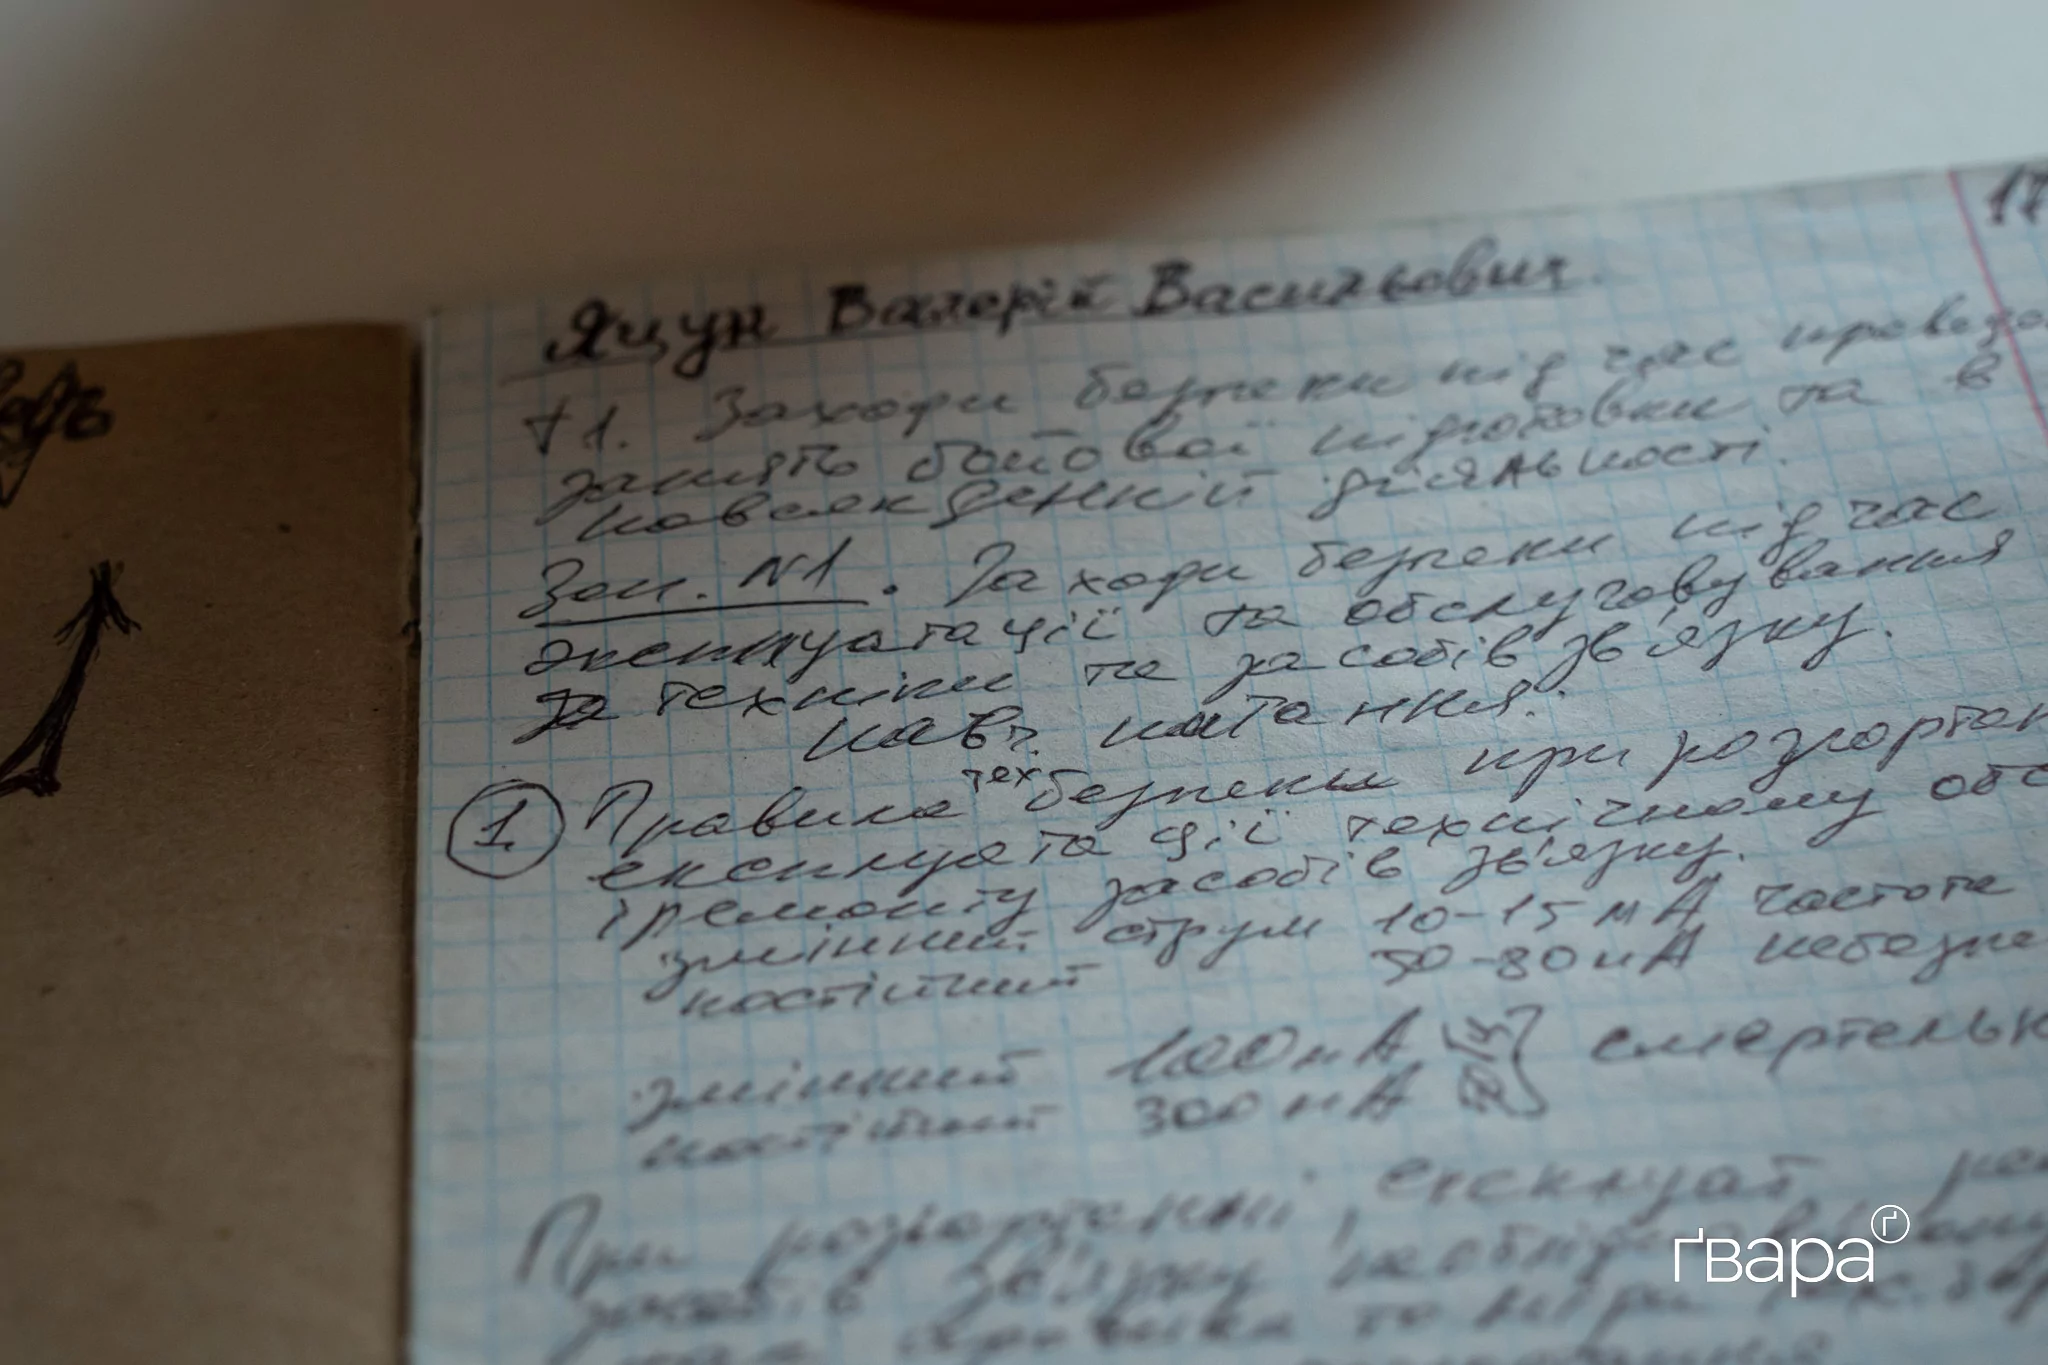 17
Яцун Валерій Васильович.
Т1. Заходи безпеки під час проведе
занять бойової підготовки та в
повсякденній діяльності.
Зан. №1. Заходи безпеки під час
эксплуатації та обслуговування
та техніки та засобів зв'язку.
Навч. питання:
1. Правила тех безпеки при розгортан
експлуатації технічному обс
і ремонту засобів зв'язку.
змінний струм 10-15 мА частота
постійний 50-80 мА небезпе
змінний 100 мА
постійний 300 мА 50 Гц } смертельн
При розгортенні, експлуат, рем
засобів зв'язку необхідно
ґвара